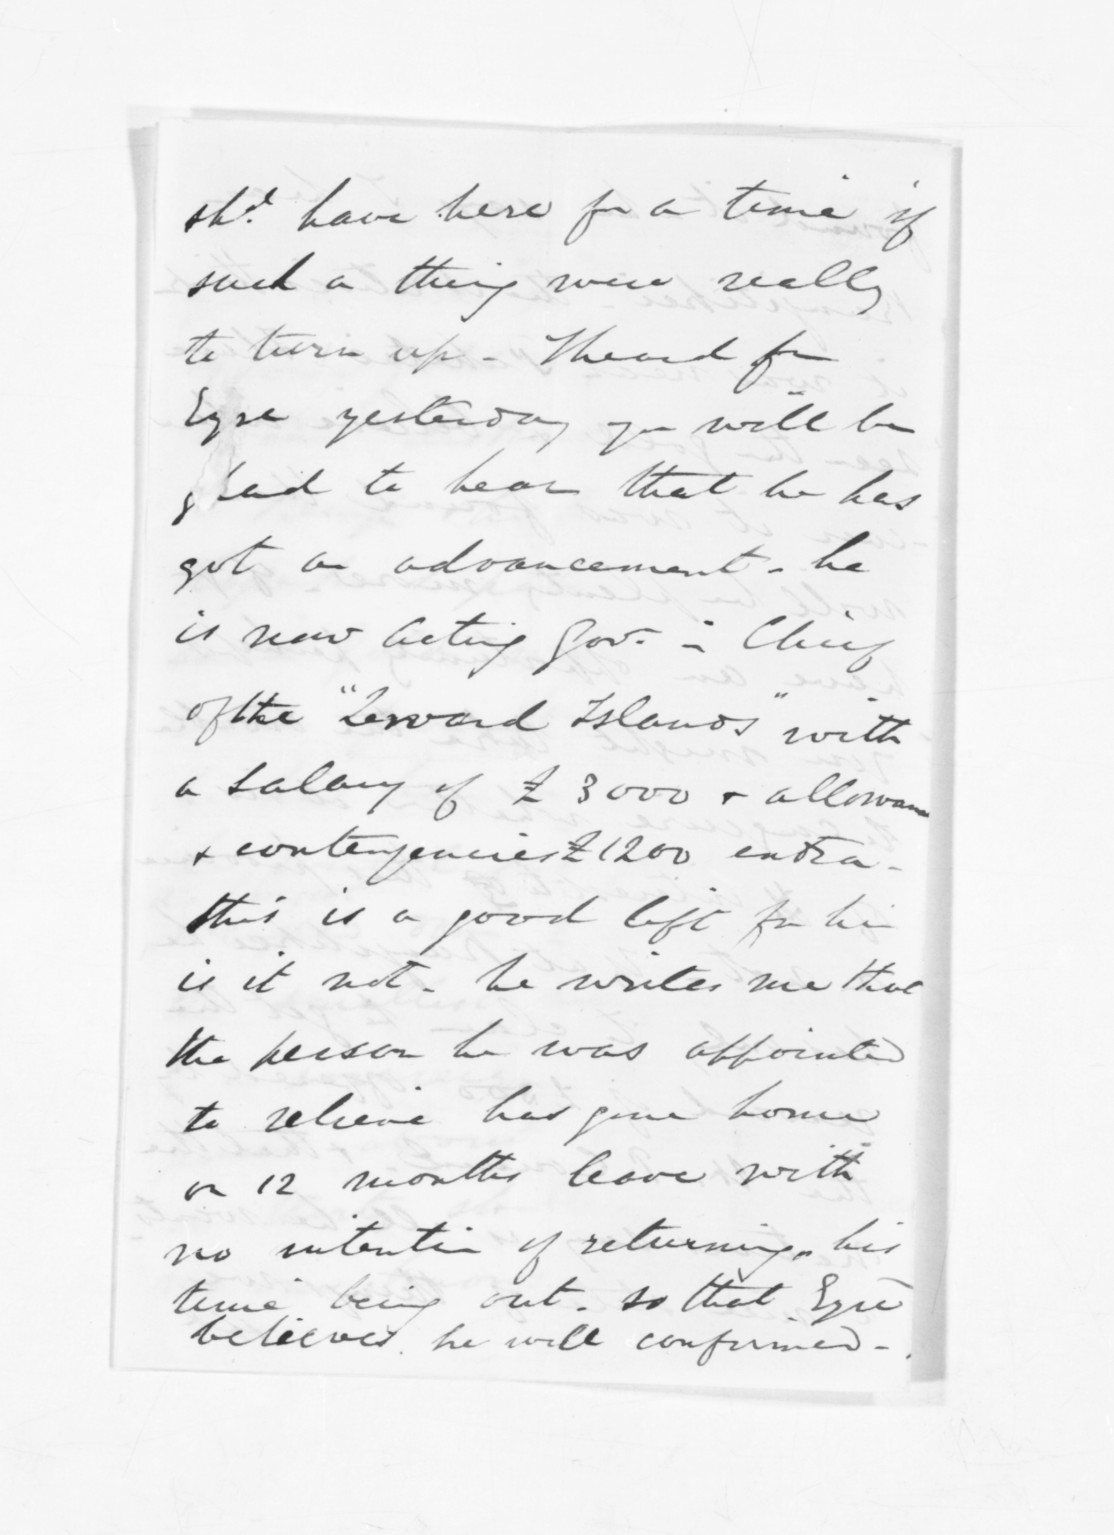 shd. have here for a time if
such a thing were really
to turn up - I heard fm
Eyre yesterday you will be
glad to hear that he has
got an advancement - he
is now Acting Gov. in Chief
of the "Leeward Islands" with
a salary of £3000 & allowances
& contengencies £1200 extra -
this is a good lift for him
is it not - he writes me that
the person he was appointed
to relieve has gone home
on 12 months leave with
no intention of returning, his
time being out - so that Eyre
believes he will confirmed -